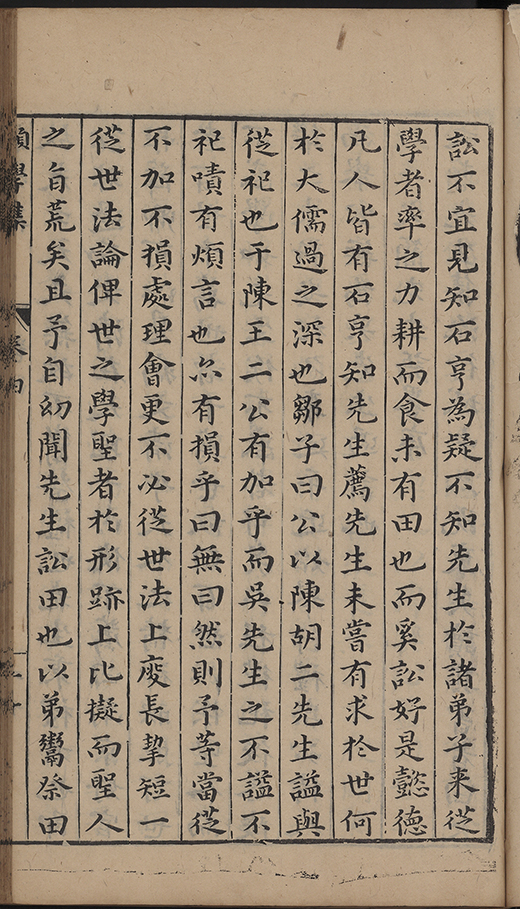 訟不宜見知石亨為疑不知先生於諸弟子来從
學者率之力耕而食未有田也而奚訟好是懿德
凡人皆有石亨知先生薦先生未嘗有求於世何
於大儒過之深也鄒子曰公以陳胡二先生謚與
從祀也于陳王二公有加乎而吳先生之不謚不
祀嘖有煩言也尔有損乎曰無曰然則予等當從
不加不損處理會更不必從世法上度長挈短一
從世法論俾世之學聖者於形跡上比擬而聖人
之旨荒矣且予自幼聞先生訟田也以弟鬻祭田
願學集
卷四